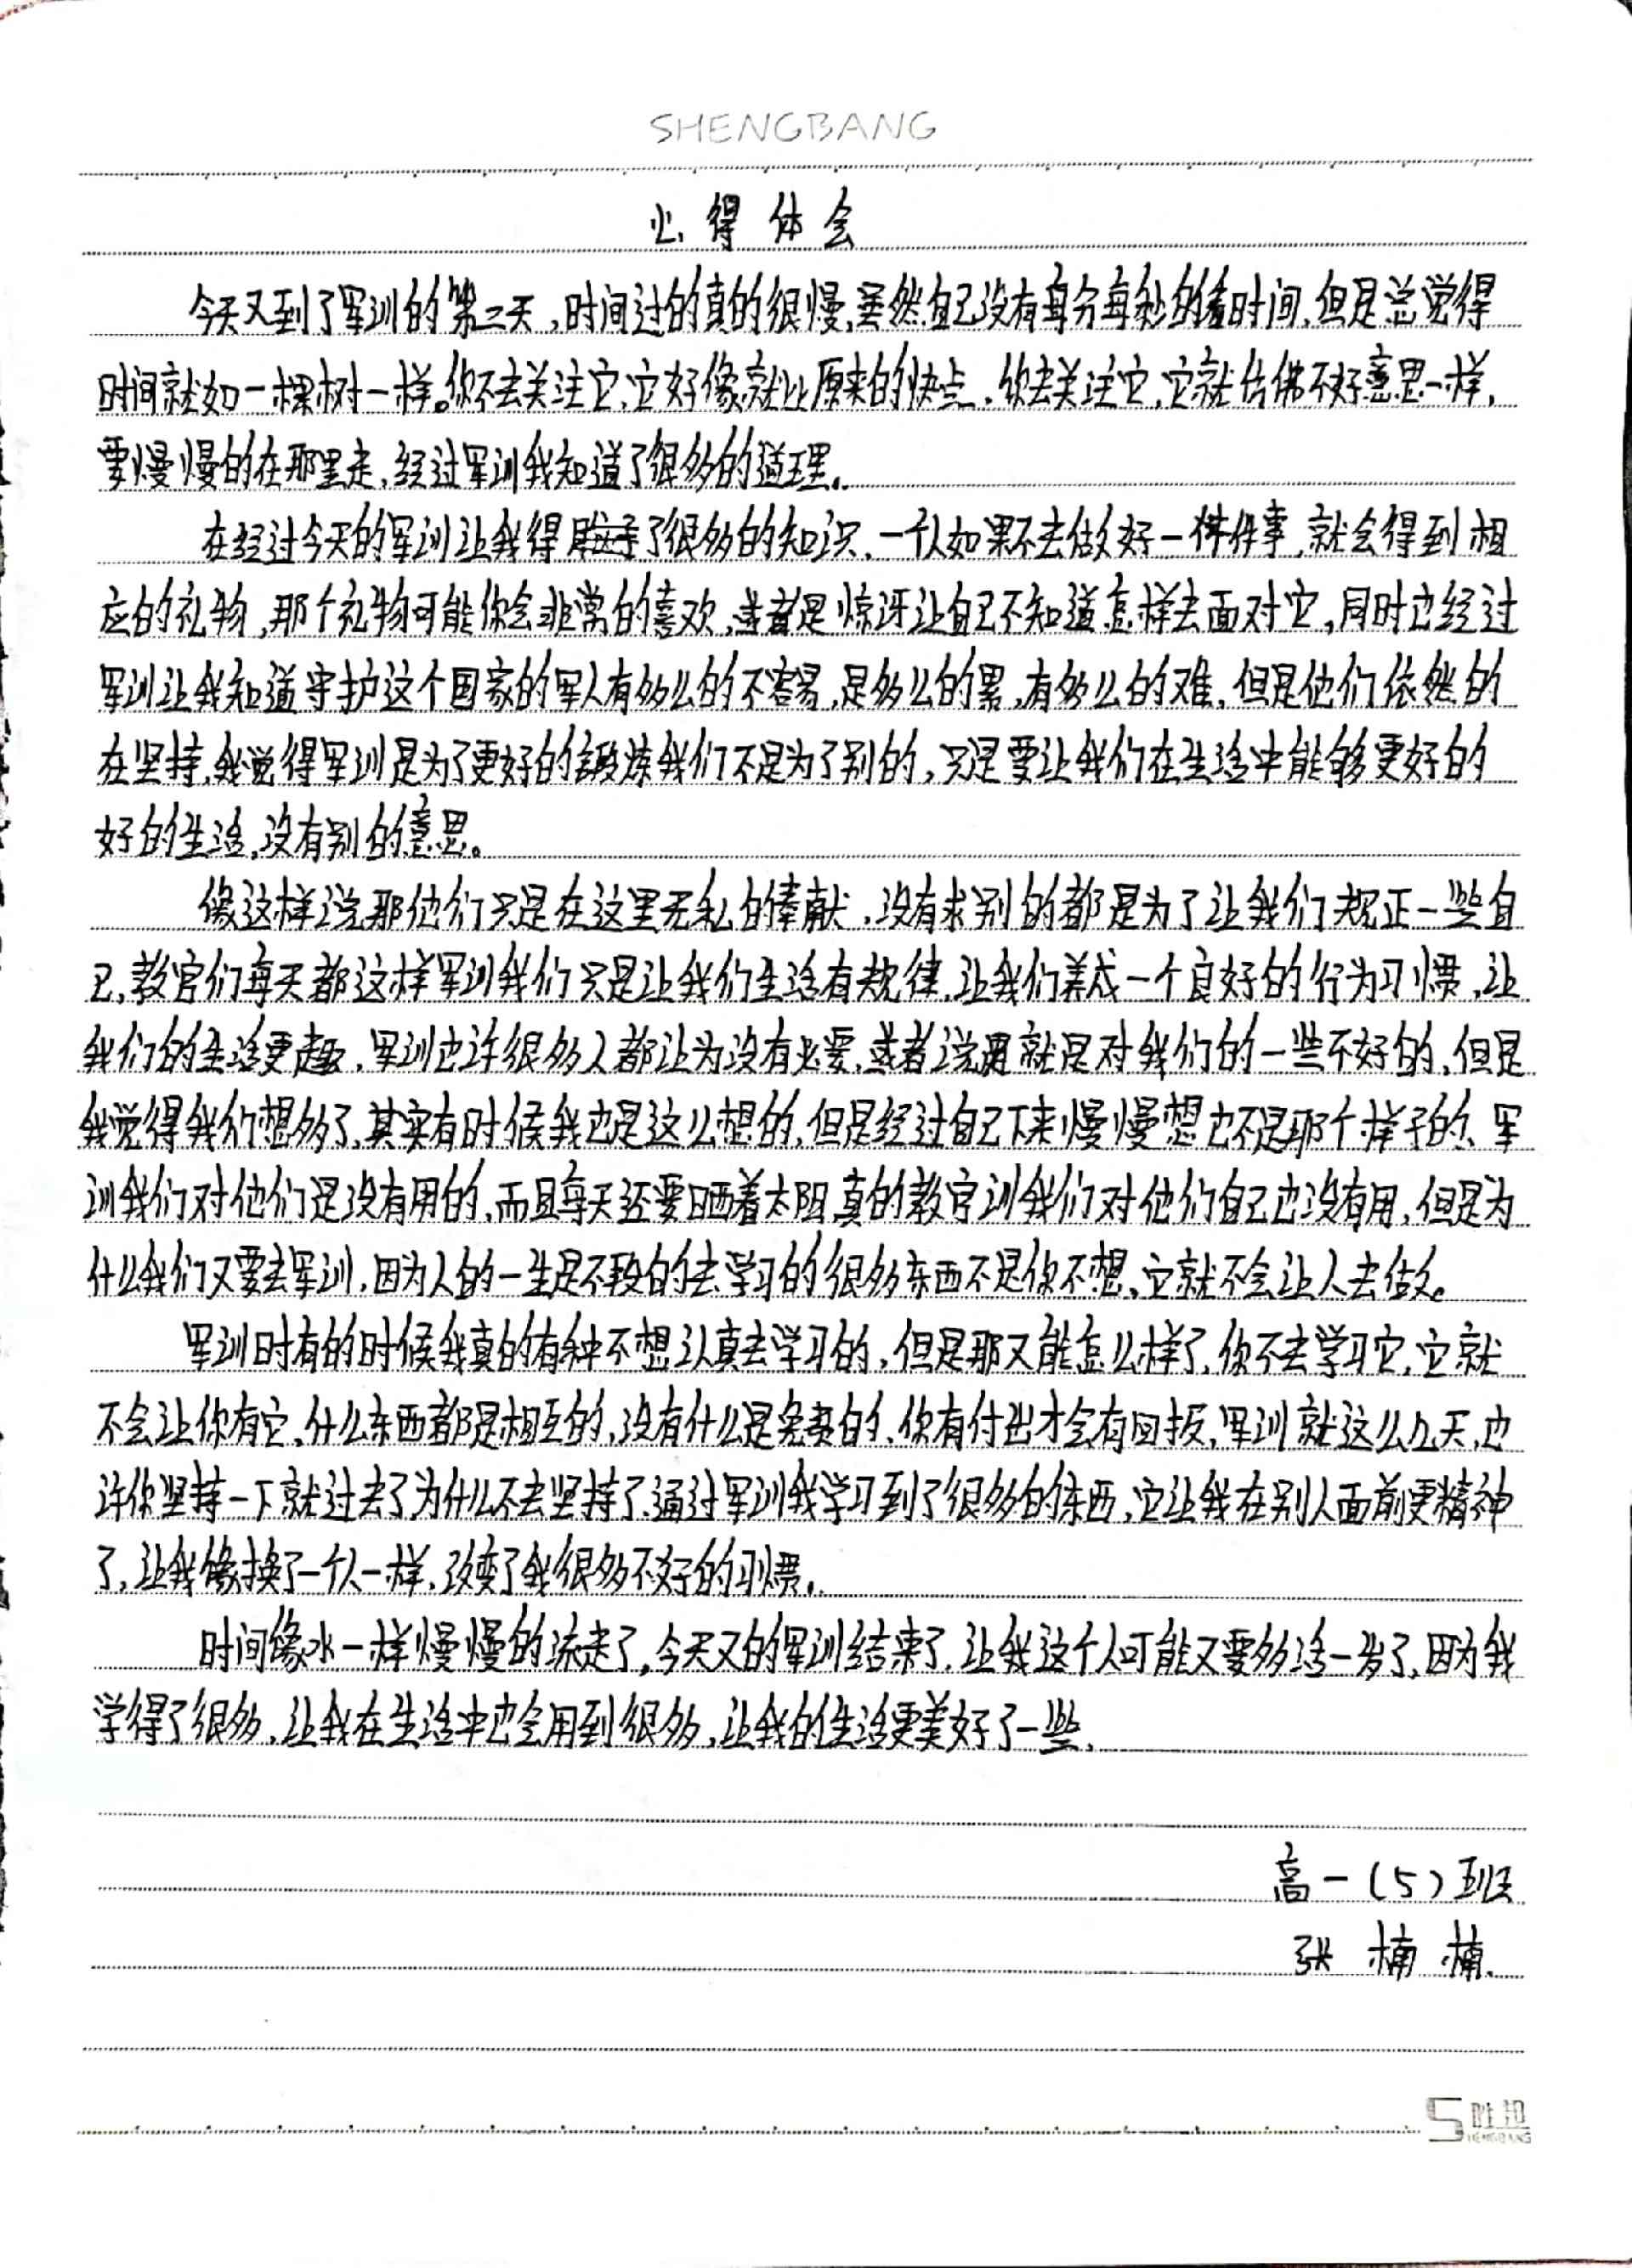 SHENGBANG
心得体会
今天又到了军训的第二天,时间过的真的很慢,虽然自己没有每分每秒的看时间,但是总觉得
时间就如一棵树一样。你不去关注它,它好像就比原来的快点,你去关注它,它就仿佛不好意思一样,
要慢慢的在那里走,经过军训我知道了很多的道理。
在经过今天的军训让我得了很多的知识,一个人如果不去做好一件事,就会得到相
应的礼物,那个礼物可能你会非常的喜欢,或者是惊讶让自己不知道怎样去面对它,同时也经过
军训让我知道守护这个国家的军人有多么的不容易,是多么的累,有多么的难,但是他们依然的
在坚持,我觉得军训是为了更好的锻炼我们不是为了别的,只是要让我们在生活中能够更好的
好的生活,没有别的意思。
像这样说那他们只是在这里无私的奉献,没有求别的都是为了让我们规正一些自
己,教官们每天都这样军训我们只是让我们生活有规律,让我们养成一个良好的行为习惯,让
我们的生活更趣,军训也许很多人都让为没有必要,或者说就是对我们的一些不好的,但是
我觉得我们想多了,其实有时候我也是这么想的,但是经过自己下来慢慢想也不是那个样子的,军
训我们对他们是没有用的,而且每天还要晒着太阳,真的教官训我们对他们自己也没有用,但是为
什么我们又要去军训,因为人的一生是不段的去学习的很多东西不是你不想,它就不会让人去做。
军训时有的时候我真的有种不想认真去学习的,但是那又能怎么样了,你不去学习它,它就
不会让你有它,什么东西都是相互的,没有什么是免费的,你有付出才会有回报,军训就这么几天,也
许你坚持一下就过去了为什么不去坚持了,通过军训我学习到了很多的东西,它让我在别人面前更精神
了,让我像换了一个人一样,改变了我很多不好的习惯。
时间像水一样慢慢的流走了,今天又的军训结束了,让我这个人可能又要多活一岁了,因为我
学得了很多,让我在生活中也会用到很多,让我的生活更美好了一些,
高一(5)班
张楠楠.
S 胜邦
SHENGBANG